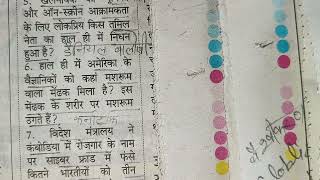 और ऑन-स्क्रीन आक्रामकता
के लिए लोकप्रिय किस तमिल
नेता का हाल ही में निधन
हुआ है? डेनियल बालाजी
6. हाल ही में अमेरिका के
वैज्ञानिकों को कहां मशरूम
वाला मेंढक मिला है? इस
मेंढक के शरीर पर मशरूम
उगते हैं? कर्नाटक
7. विदेश मंत्रालय ने
कंबोडिया में रोजगार के नाम
पर साइबर फ्रॉड में फंसे
कितने भारतीयों को तीन